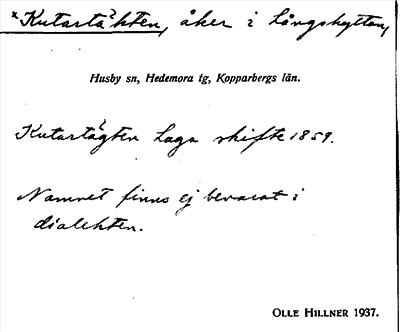 *Kutartäkten, åker i Långshyttan,
Husby sn, Hedemora tg, Kopparbergs län.
Kutartägten Laga skifte 1859.
Namnet finns ej bevarat i
dialekten.
OLLE HILLNER 1937.